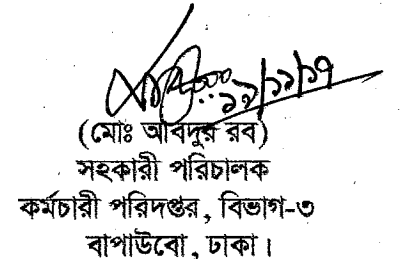 ১৯/১১/১৭
(মোঃ আবদুর রব)
সহকারী পরিচালক
কর্মচারী পরিদপ্তর, বিভাগ-৩
বাপাউবো, ঢাকা।